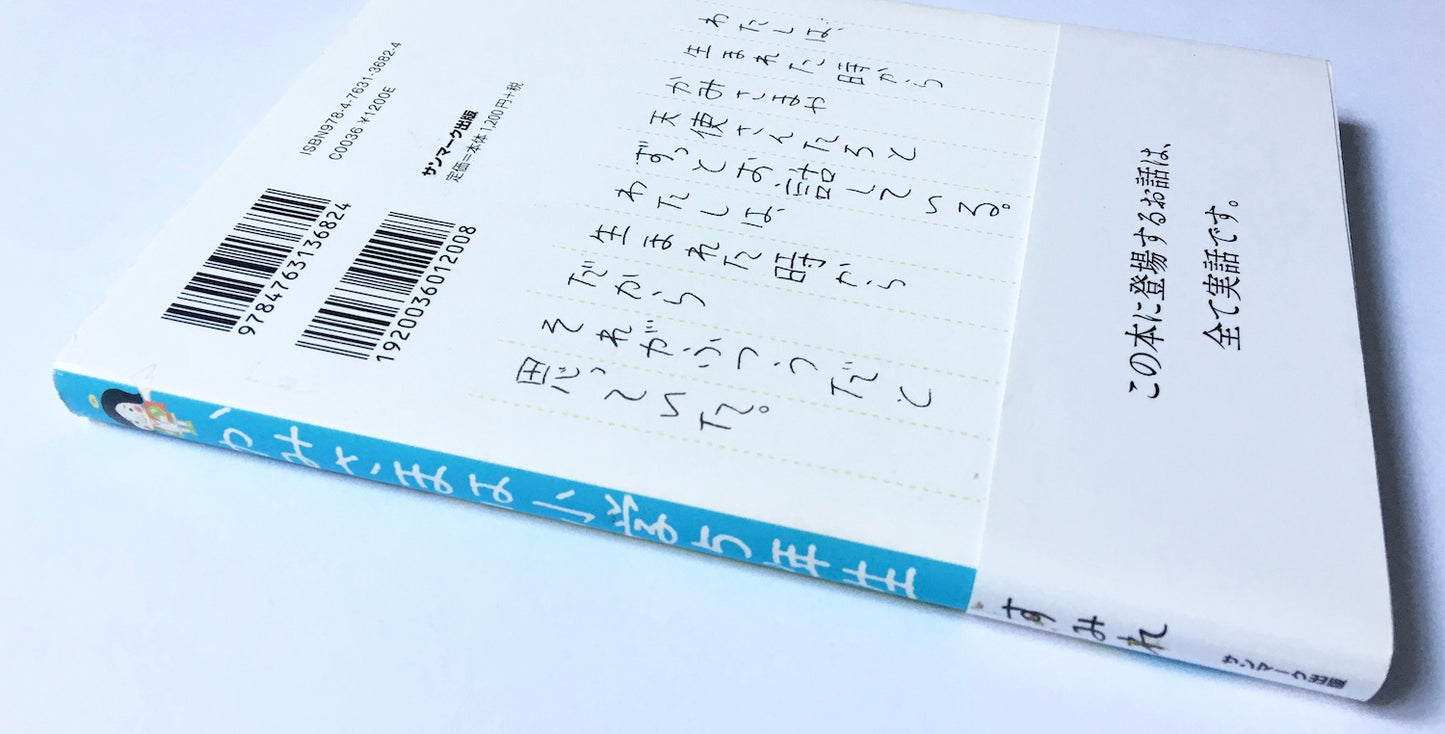 ISBN978-4-7631-3682-4
C0036 ¥1200E
サンマーク出版
定価=本体1,200円+税
9784763136824
1920036012008
わたしは、
生まれた時から
かみさまや
天使さんたちと
ずっとお話している。
わたしは、
生まれた時から
だから
それがふつうだと
思っていた。
この本に登場するお話は、
全て実話です。
かみさまは小学5年生
すみれ
サンマーク出版